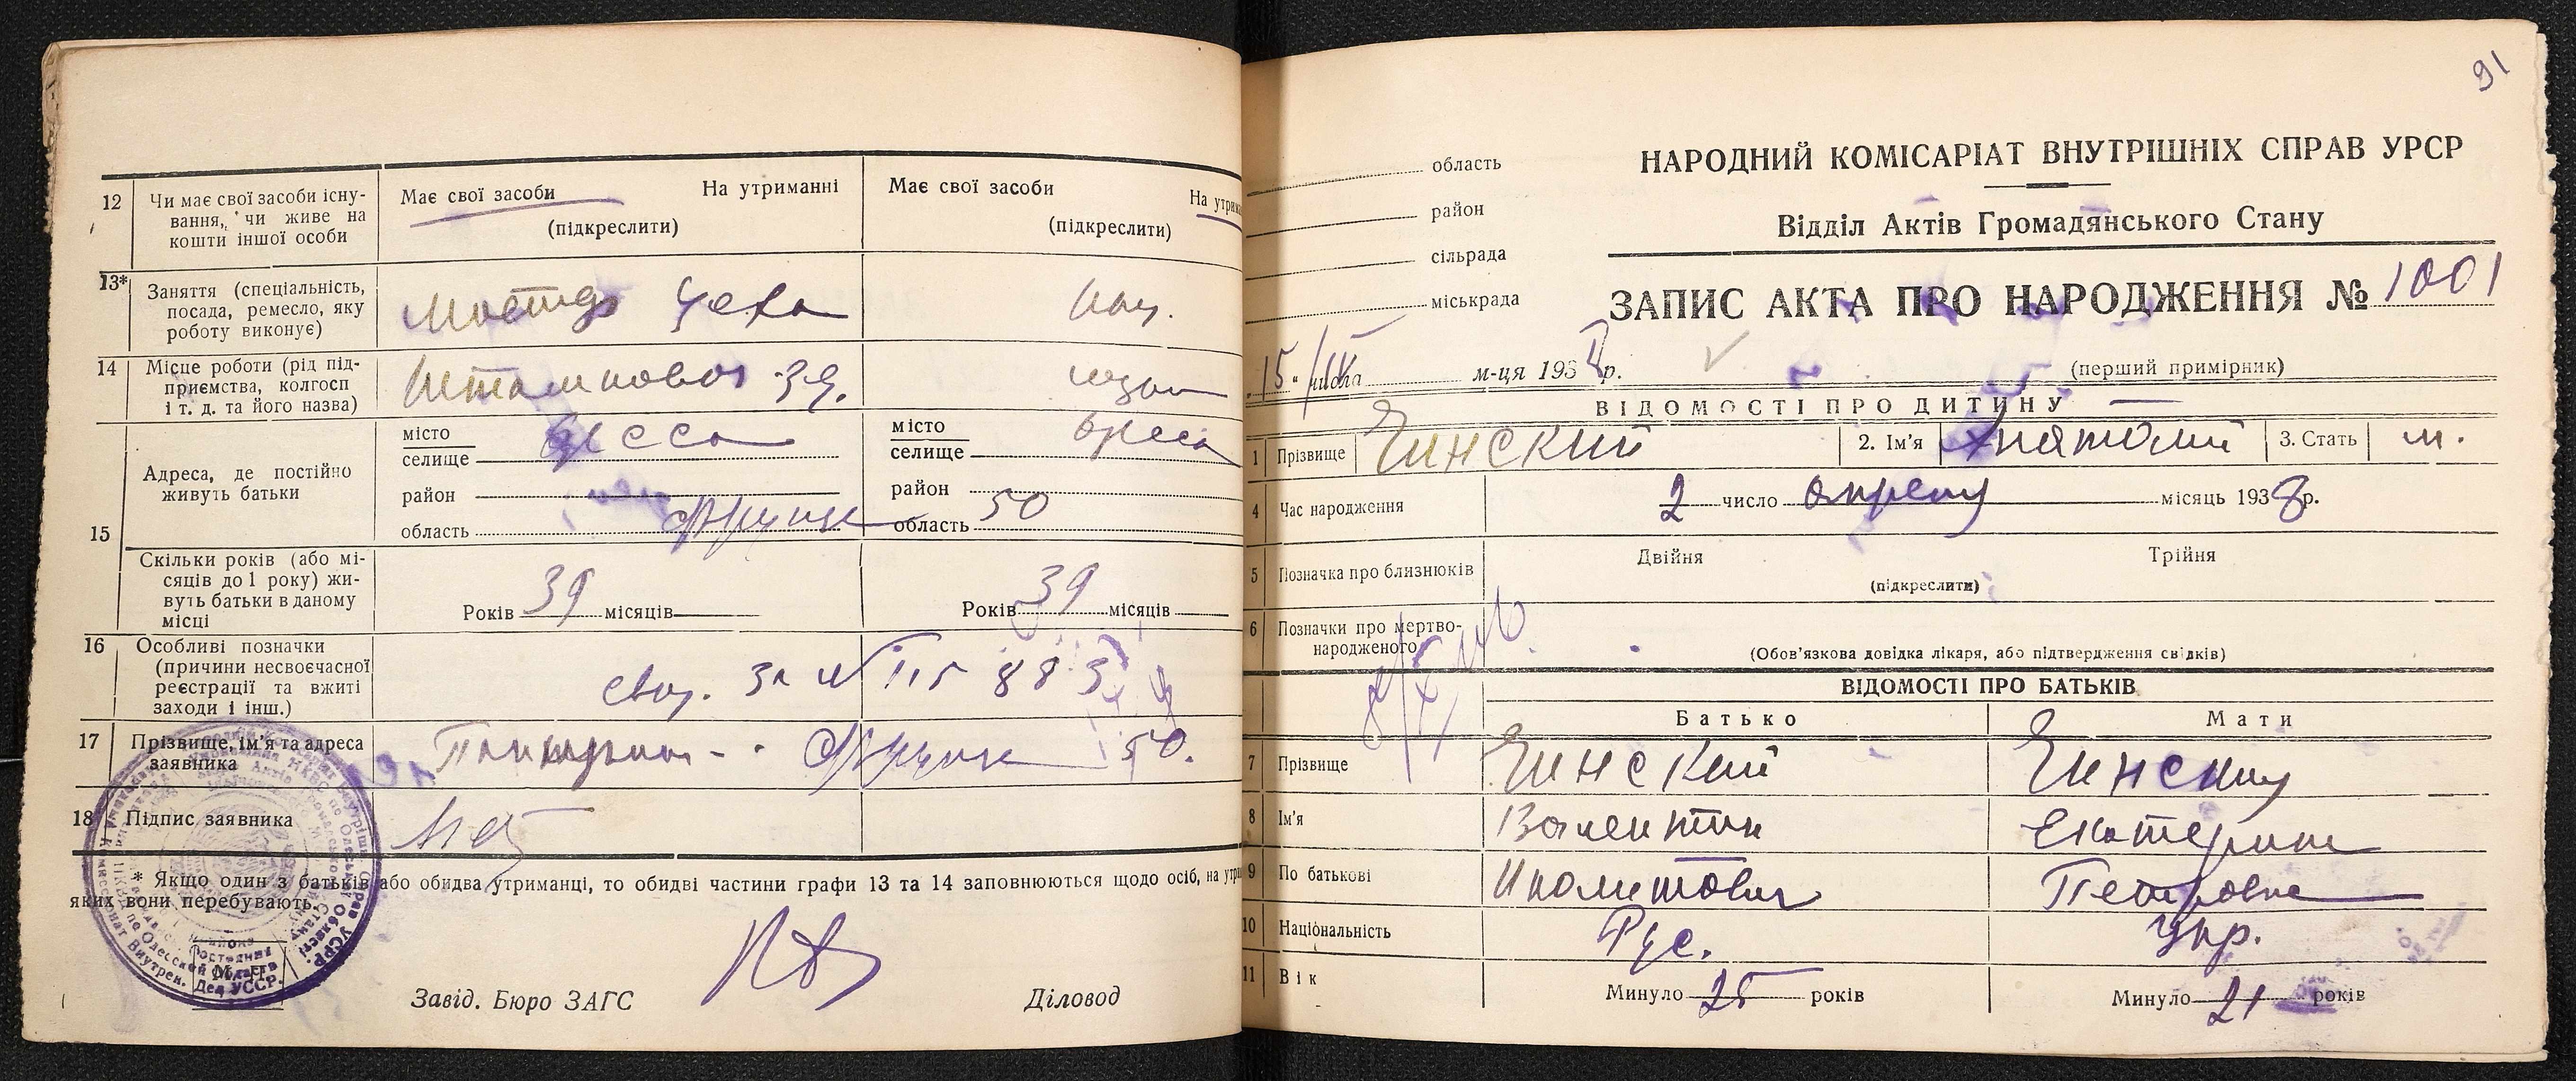 12 Чи має свої засоби існу-
вання, чи живе на
кошти іншої особи
Має свої засоби На утриманні
(підкреслити)
Має свої засоби На утрим
(підкреслити)
13* Заняття (спеціальність,
посада, ремесло, яку
роботу виконує)
Мастер цеха
14 Місце роботи (рід під-
приємства, колгосп
і т. д. та його назва)
15 Адреса, де постійно
живуть батьки
місто
селище Одесса
район
область Фрунзе
місто
селище Одесса
район
область 50
Скільки років (або мі-
сяців до 1 року) жи-
вуть батьки в даному
місці
Років 39 місяців
Років 39 місяців
16 Особливі позначки
(причини несвоєчасної
реєстрації та вжиті
заходи і інш.)
за №
17 Прізвище, ім'я та адреса
заявника
Фрунзе 50.
18 Підпис заявника
* Якщо один з батьків або обидва утриманці, то обидві частини графи 13 та 14 заповнюються щодо осіб, на утри
яких вони перебувають.
М. П.
Завід. Бюро ЗАГС Діловод
91
область
район
сільрада
міськрада
НАРОДНИЙ КОМІСАРІАТ ВНУТРІШНІХ СПРАВ УРСР
Відділ Актів Громадянського Стану
ЗАПИС АКТА ПРО НАРОДЖЕННЯ № 1001
15 /IV числа м-ця 1938 р.
(перший примірник)
ВІДОМОСТІ ПРО ДИТИНУ
1 Прізвище Чинский 2. Ім'я Анатолий 3. Стать м.
4 Час народження 2 число апреля місяць 1938 р.
5 Позначка про близнюків Двійня Трійня
(підкреслити)
6 Позначки про мертво-
народженого
(Обов'язкова довідка лікаря, або підтвердження свідків)
ВІДОМОСТІ ПРО БАТЬКІВ
Батько Мати
7 Прізвище Чинский Чинская
8 Ім'я Валентин Екатерина
9 По батькові Иполитович Петровна
10 Національність Рус. Укр.
11 Вік Минуло 25 років Минуло 21 років